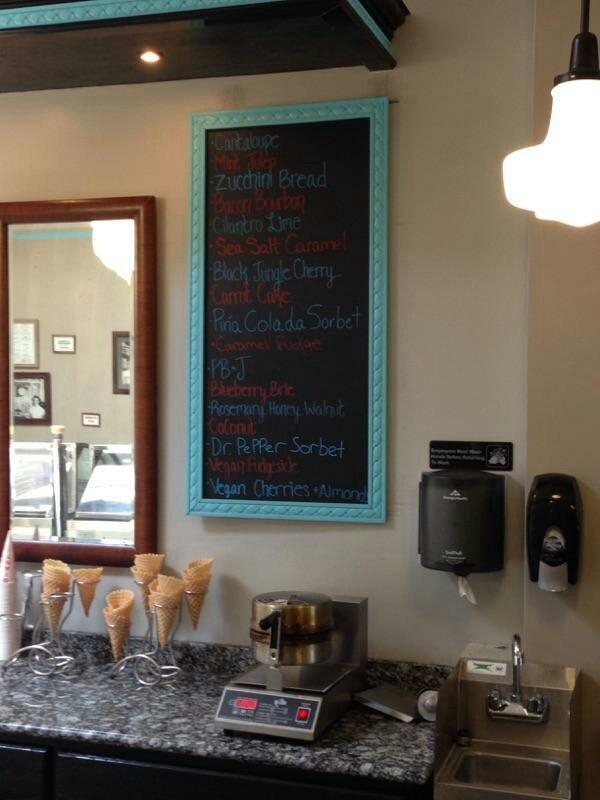 • Cantaloupe
• Mint Julep
• Zucchini Bread
• Bacon Bourbon
• Cilantro Lime
• Sea Salt Caramel
• Black Jungle Cherry
• Carrot Cake
• Piña Colada Sorbet
• Caramel Fudge
• PB + J
• Blueberry Brie
• Rosemary Honey Walnut
• Coconut
• Dr. Pepper Sorbet
• Vegan Fudgesicle
• Vegan Cherries + Almond
Employees Must Wash
Hands Before Returning
To Work